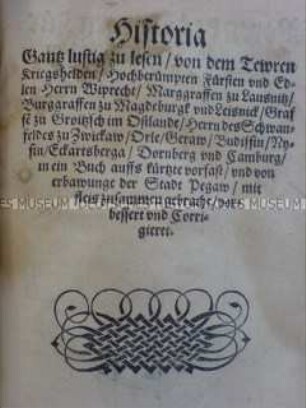 Historia
Gantz lustig zu lesen / von dem Tewren
Kriegshelden / Hochberümpten Fürsten und Ed-
len Herrn Wiprecht / Marggraffen zu Lausnitz /
Burggraffen zu Magdeburgk und Leisnick / Graf
fe zu Groitzsch im Ostlande / Herrn des Schwan-
feldes zu Zwickaw / Orle / Geraw / Budissin / Ny-
sin / Eckartsberga / Dornberg und Camburg /
in ein Buch auffs kürtze vorfast / und von
erbawunge der Stadt Pegaw / mit
fleis zusammen gebracht / vor-
bessert und Corri-
gieret.